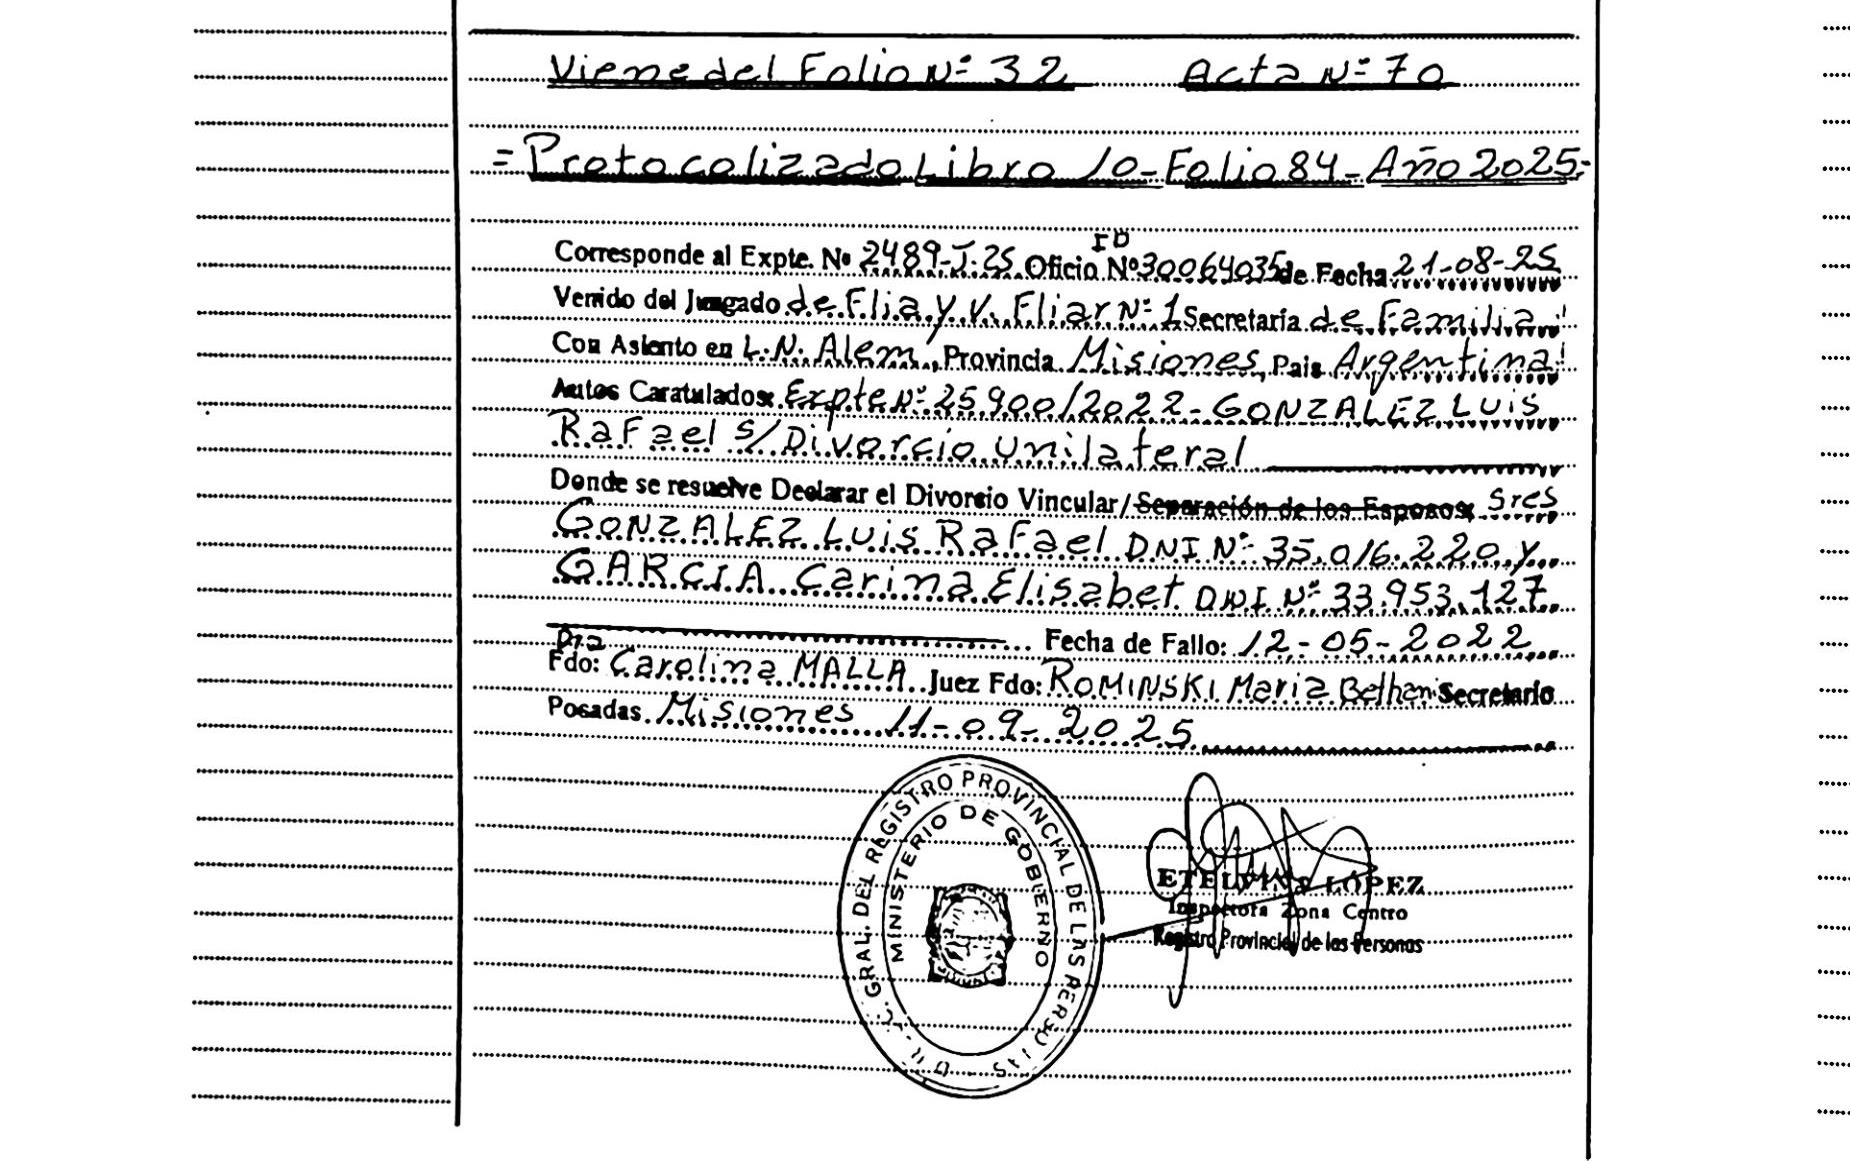 Viene del Folio Nº 32 Acta Nº 70
=Protocolizado Libro 10-Folio 84-Año 2025-
Corresponde al Expte. Nº 2489-J-25 Oficio Nº ID 30064035 de Fecha 21-08-25
Venido del Juzgado de Flia y V. Fliar Nº 1 Secretaría de Familia
Con Asiento en L.N. Alem, Provincia Misiones, País Argentina
Autos Caratulados: Expte Nº 25900/2022-GONZALEZ LUIS
Rafael s/Divorcio Unilateral
Donde se resuelve Declarar el Divorcio Vincular/Separación de los Esposos: Sres
GONZALEZ LUIS Rafael DNI Nº 35.016.220 y
GARCIA Carina Elisabet DNI Nº 33.953.127
Fecha de Fallo: 12-05-2022
Fdo: Dra Carolina MALLA Juez Fdo: ROMINSKI Maria Bethani Secretario
Posadas Misiones 11-09-2025
D.R.C. GRAL. DEL REGISTRO PROVINCIAL DE LAS PERSONAS
MINISTERIO DE GOBIERNO
ETELVINA LOPEZ
Inspectora Zona Centro
Registro Provincial de las Personas